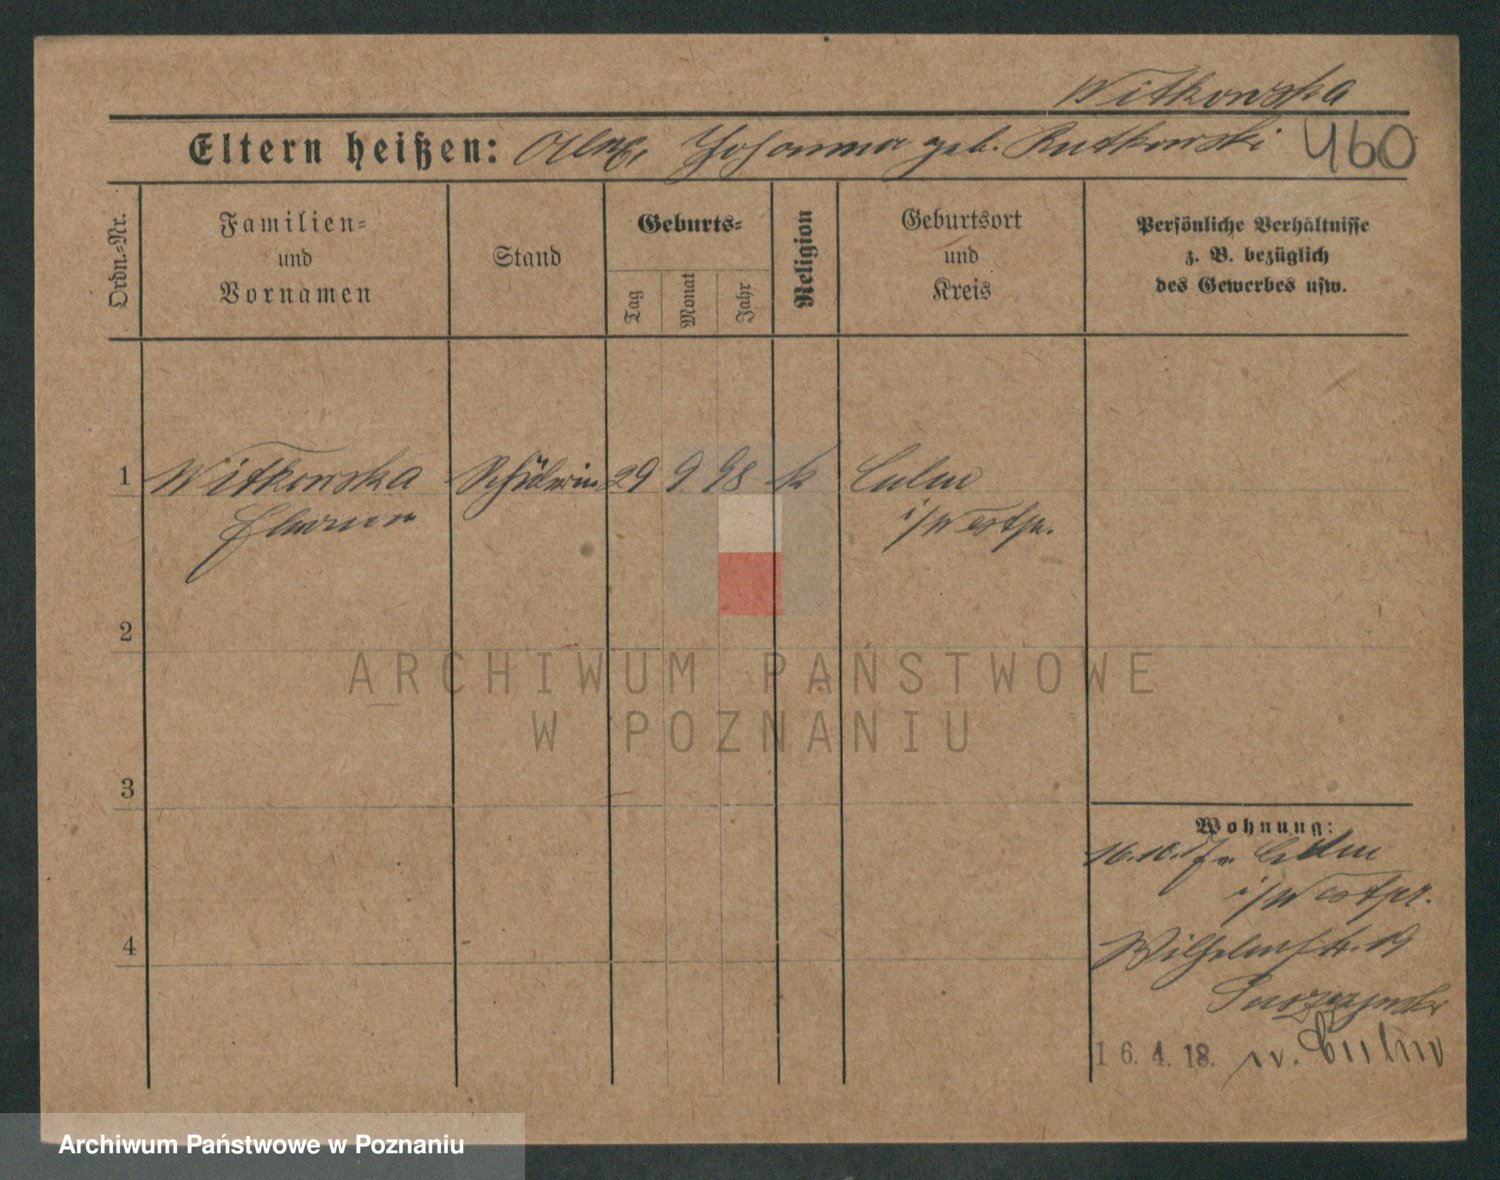 Witkowska
Eltern heißen: Johanna geb. Rutkowski 460
Ordn.-Nr.
Familien-
und
Vornamen
Stand
Geburts-
Tag
Monat
Jahr
Religion
Geburtsort
und
Kreis
Persönliche Verhältnisse
z. B. bezüglich
des Gewerbes usw.
1 Witkowska Schülerin 29 9 98 k Culm
i/Westpr.
2
ARCHIWUM PAŃSTWOWE
W POZNANIU
3
Wohnung:
16.10.17 v. Culm
i/Westpr.
4
Wilhelmstr. 19
16.4.18. n. Culm
Archiwum Państwowe w Poznaniu